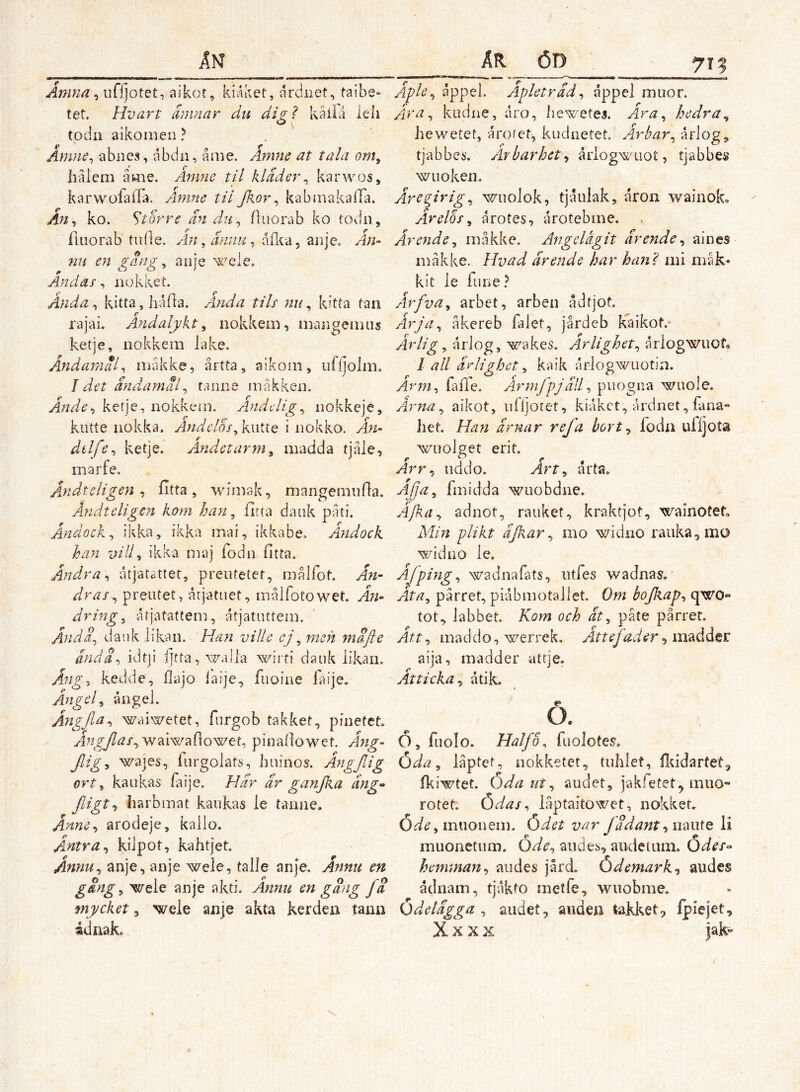 ÅN
ÅR ÖD 713
Åmna, uſſjotet, aikot, kiåket, årdnet, taibe-
tet. Hvart åmnar du dig? kåſſå leh
todn aikomen?
Åmne, abnes, åbdn, åme. Åmne at tala om,
hålem åme. Åmne til klåder, karwos,
karwoſaſſa. Åmne til ſkor, kabmakaſſa.
Ån, ko. Större ån du, ſtuorab ko todn,
ſtuorab tuſte. Ån, ånnu, åſka, anje. Ån-
nu en gång, anje wele.
Åndas, nokket.
Ånda, kitta, håſta. Ånda tils nu, kitta tan
rajai. Åndalykt, nokkem, mangemus
ketje, nokkem lake.
Åndamål, måkke, årtta, aikom, uſſjolm.
I det åndamål, tanne måkken.
Ånde, ketje, nokkem. Åndelig, nokkeje,
kutte nokka. Åndelös, kutte i nokko. Ån-
delſe, ketje. Åndetarm, madda tjåle,
marfe.
Åndteligen, ſitta, wimak, mangemuſta.
Åndteligen kom han, ſitta dauk påti.
Åndock, ikka, ikka mai, ikkabe. Åndock
han vill, ikka maj ſodn ſitta.
Åndra, åtjatattet, preutetet, målſot. Ån-
dras, preutet, åtjatuet, målſotowet. Ån-
dring, åtjatattem, åtjatuttem.
Åndå, dauk likan. Han ville ej, men måſte
åndå, idtji ſjtta, walla wirti dauk likan.
Ång, kedde, ſlajo ſaije, ſuoine ſaije.
Ångel, ångel.
Ångſla, waiwetet, ſurgob takket, pinetet.
Ångſlas, waiwaſtowet, pinaſtowet. Ång-
ſlig, wajes, ſurgolats, huinos. Ångſlig
ort, kaukas ſaije. Hår år ganſka ång-
ſligt, harbmat kaukas le tanne.
Ånne, arodeje, kallo.
Åntra, kilpot, kahtjet.
Ånnu, anje, anje wele, talle anje. Ånnu en
gång, wele anje akti. Ånnu en gång ſå
mycket, wele anje akta kerden tann
ådnak.
Åple, åppel. Åpletråd, åppel muor.
Åra, kudne, åro, hewetes. Åra, hedra,
hewetet, årotet, kudnetet. Årbar, årlog,
tjabbes. Årbarhet, årlogwuot, tjabbes
wuoken.
Åregirig, wuolok, tjåulak, åron wainok.
Årelös, årotes, årotebme.
Årende, måkke. Angelågit årende, aines
måkke. Hvad årende har han? mi måk-
kit le ſune?
Årfva, arbet, arben ådtjot.
Årja, åkereb ſalet, jårdeb kaikot.
Årlig, årlog, wakes. Årlighet, årlogwuot.
I all årlighet, kaik årlogwuotin.
Årm, ſaſſe. Årmſpjåll, puogna wuole.
Årna, aikot, uſſjotet, kiåket, årdnet, ſana-
het. Han årnar reſa bort, ſodn uſſjota
wuolget erit.
Årr, uddo. Årt, årta.
Åſſja, ſmidda wuobdne.
Åſka, adnot, rauket, kraktjot, wainotet.
Min plikt åſkar, mo widno rauka, mo
widno le.
Åſping, wadnaſats, utſes wadnas.
Åta, pårret, piåbmotallet. Om boſkap, qwo-
tot, labbet. Kom och åt, påte pårret.
Ått, maddo, werrek. Åtteſader, madder
aija, madder attje.
Åtticka, åtik.
Ö.
Ö, ſuolo. Halfö, ſuolotes.
Öda, låptet, nokketet, tuhlet, ſkidartet,
ſkiwtet. Öda ut, audet, jakſetet, muo-
rotet. Ödas, låptaitowet, nokket.
Öde, muonem. Ödet var ſådant, naute li
muonetum. Öde, audes, audetum. Ödes-
hemman, audes jård. Ödemark, audes
ådnam, tjåkto metſe, wuobme.
Ödelågga, audet, auden takket, ſpiejet,
Xxxx jak-